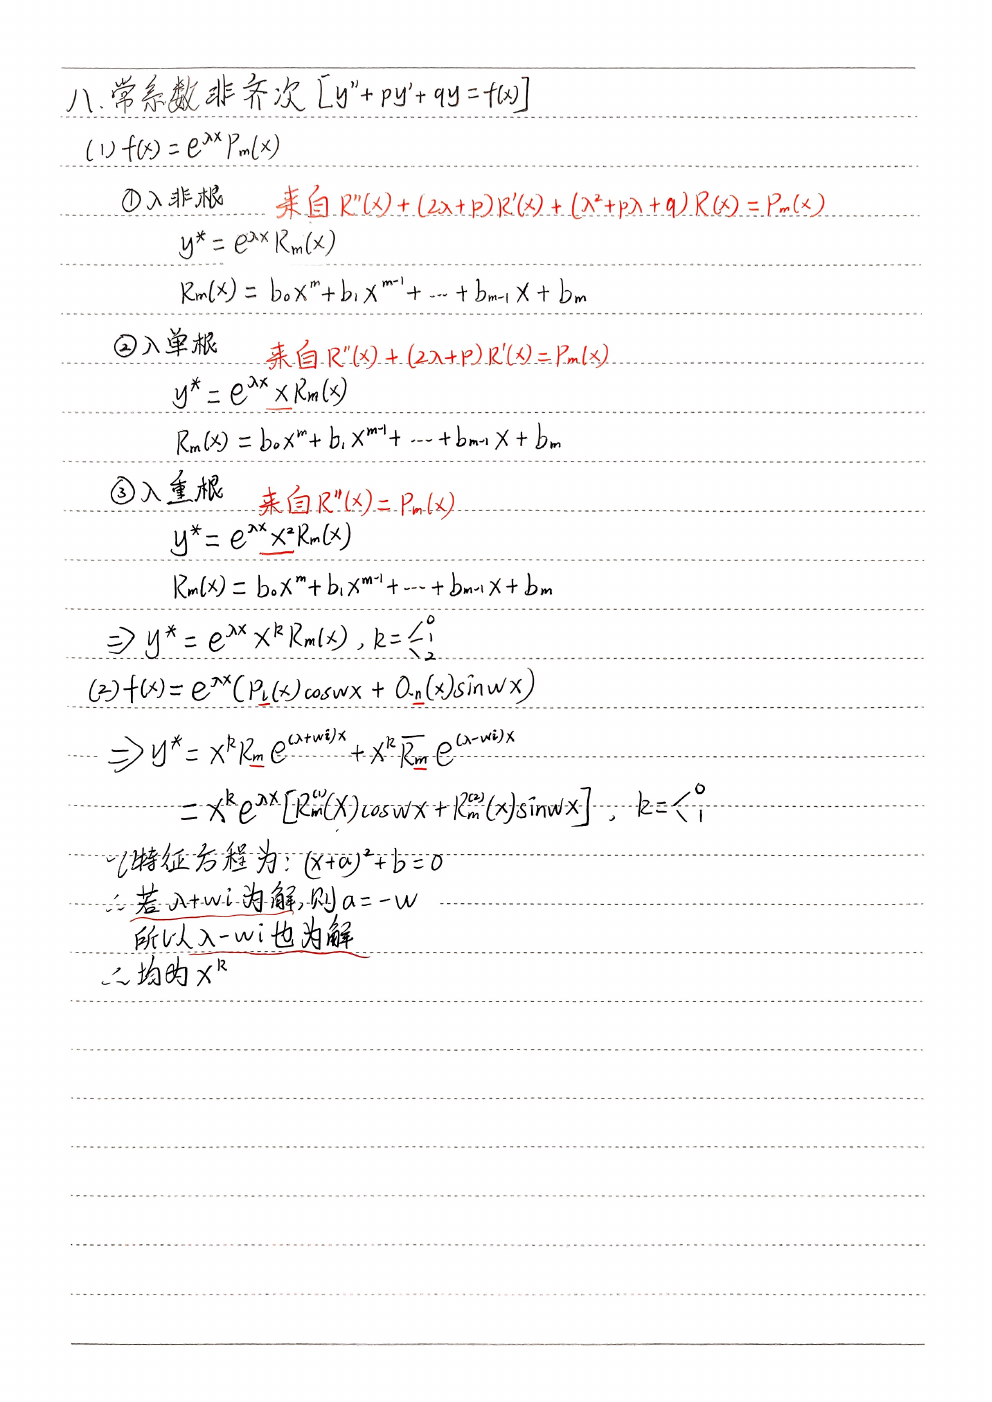 八.常系数非齐次[y''+py'+qy=f(x)]
(1)f(x)=e^{λx}Pm(x)
①λ非根 来自R''(x)+(2λ+p)R'(x)+(λ²+pλ+q)R(x)=Pm(x)
y*=e^{λx}Rm(x)
Rm(x)=b₀x^m+b₁x^{m-1}+…+b_{m-1}x+bm
②λ单根 来自R''(x)+(2λ+p)R'(x)=Pm(x)
y*=e^{λx}xRm(x)
Rm(x)=b₀x^m+b₁x^{m-1}+…+b_{m-1}x+bm
③λ重根 来自R''(x)=Pm(x)
y*=e^{λx}x²Rm(x)
Rm(x)=b₀x^m+b₁x^{m-1}+…+b_{m-1}x+bm
⇒y*=e^{λx}x^kRm(x),k=0 1 2
(2)f(x)=e^{λx}(P_l(x)coswx+Q_n(x)sinwx)
⇒y*=x^kRm e^{(λ+wi)x}+x^k\overline{Rm} e^{(λ-wi)x}
=x^ke^{λx}[Rm^{(1)}(x)coswx+Rm^{(2)}(x)sinwx],k=0 1
∵特征方程为:(x+a)²+b=0
∴若λ+wi为解,则a=-w
所以λ-wi也为解
∴均为x^k